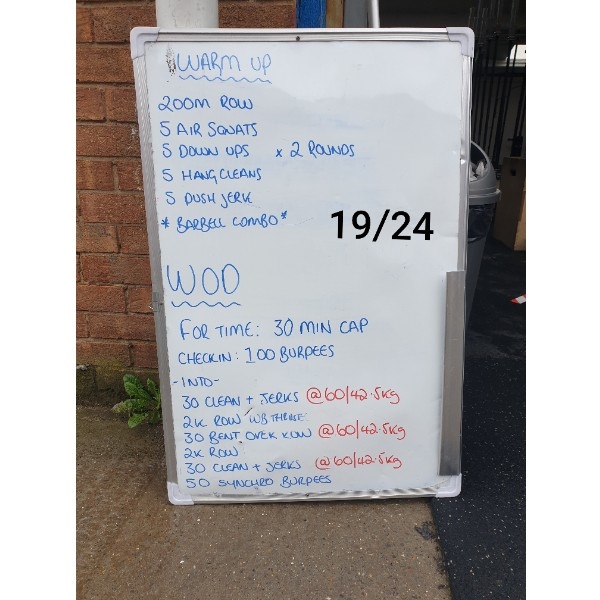 WARM UP
200M ROW
5 AIR SQUATS
5 DOWN UPS x 2 ROUNDS
5 HANG CLEANS
5 PUSH JERK
* BARBELL COMBO *
19/24
WOD
FOR TIME: 30 MIN CAP
CHECKIN: 100 BURPEES
- INTO -
30 CLEAN + JERKS @60/42.5KG
2K ROW
30 BENT OVER ROW @60/42.5KG
2K ROW
30 CLEAN + JERKS @60/42.5KG
50 SYNCHRO BURPEES